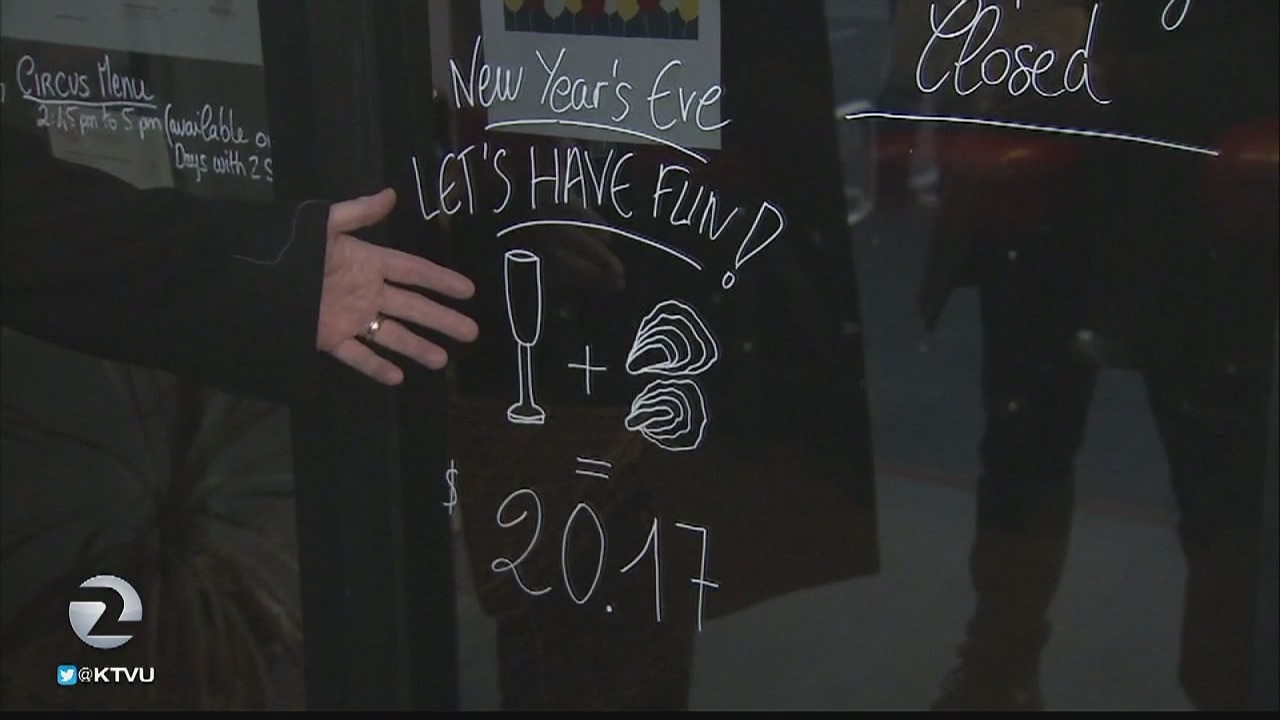 CIRCUS Menu
2:45 pm to 5 pm (available
Days with 2
New Year's Eve
LET'S HAVE FUN!
+
=
$ 20.17
Closed
2
@KTVU